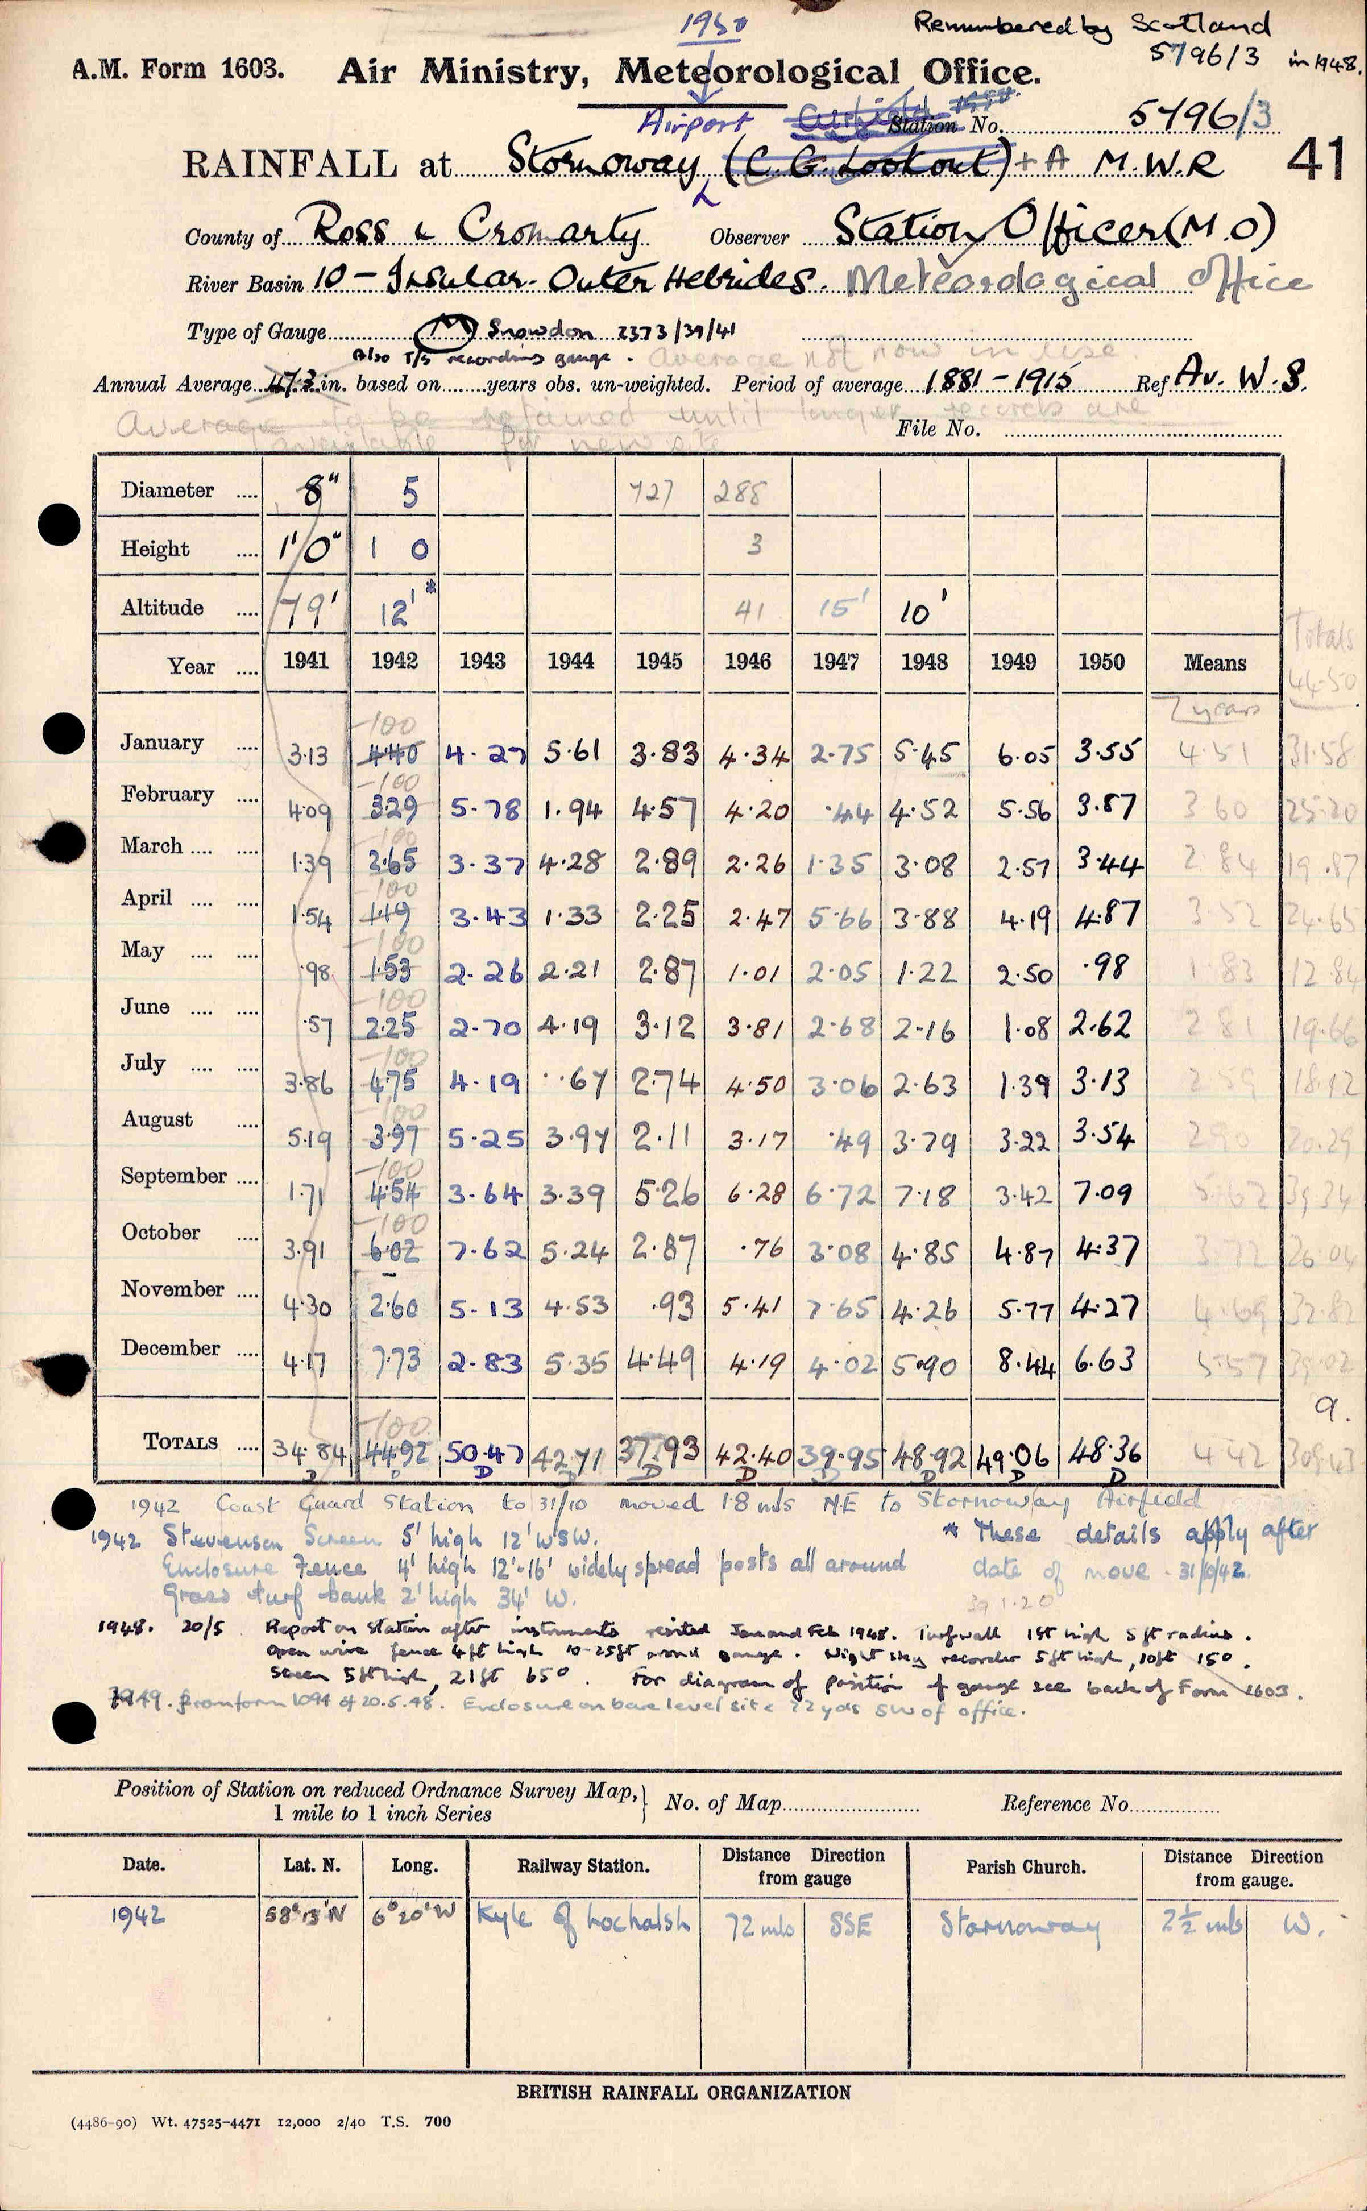 1950
Renumbered by Scotland
5796/3 in 1948.
A.M. Form 1603. Air Ministry, Meteorological Office.
Airport Airfield Station No. 5796/3
RAINFALL at Stornoway (C.G. Lookout) + A M.W.R 41
County of Ross & Cromarty Observer Station Officer (M.O)
River Basin 10 - Insular. Outer Hebrides. Meteorological Office
Type of Gauge (M) Snowdon 2373/39/41
Also T/S recording gauge. Average not now in use
Annual Average 47.3 in. based on ...... years obs. un-weighted. Period of average 1881-1915 Ref Av. W.S.
Average to be retained until longer records are
available for new site File No.
Diameter .... 8" 5 727 288
Height .... 1'0" 1 0 3
Altitude .... 79' 12'* 41 15' 10'
Totals
Year .... 1941 1942 1943 1944 1945 1946 1947 1948 1949 1950 Means 44-50
7 years
-100
January .... 3.13 4.40 4.27 5.61 3.83 4.34 2.75 5.45 6.05 3.55 4.51 31.58
-100
February .... 4.09 3.29 5.78 1.94 4.57 4.20 .44 4.52 5.56 3.87 3.60 25.20
-100
March .... .... 1.39 3.65 3.37 4.28 2.89 2.26 1.35 3.08 2.57 3.44 2.84 19.87
-100
April .... .... 1.54 1.19 3.43 1.33 2.25 2.47 5.66 3.88 4.19 4.87 3.52 24.65
-100
May .... .... .98 1.53 2.26 2.21 2.87 1.01 2.05 1.22 2.50 .98 1.83 12.84
-100
June .... .... .57 2.25 2.70 4.19 3.12 3.81 2.68 2.16 1.08 2.62 2.81 19.66
-100
July .... .... 3.86 4.75 4.19 .67 2.74 4.50 3.06 2.63 1.39 3.13 2.59 18.12
-100
August .... 5.19 3.97 5.25 3.97 2.11 3.17 .49 3.79 3.22 3.54 2.90 20.29
-100
September .... 1.71 4.54 3.64 3.39 5.26 6.28 6.72 7.18 3.42 7.09 5.62 39.34
-100
October .... 3.91 6.02 7.62 5.24 2.87 .76 3.08 4.85 4.87 4.37 3.72 26.04
November .... 4.30 2.60 5.13 4.53 .93 5.41 7.65 4.26 5.77 4.27 4.69 32.82
December .... 4.17 7.73 2.83 5.35 4.49 4.19 4.02 5.90 8.44 6.63 5.57 39.02
9.
-100
TOTALS .... 34.84 44.92 50.47 42.71 37.93 42.40 39.95 48.92 49.06 48.36 4.42 309.43
D D D D D D D D D D
1942 Coast Guard Station to 31/10 moved 1.8 mls NE to Stornoway Airfield
1942 Stevenson Screen 5' high 12' WSW. * These details apply after
Enclosure Fence 4' high 12'-16' widely spread posts all around date of move - 31/10/42.
Grass turf bank 2' high 34' W. 39 1.20
1948. 20/5 Report on station after instruments resited Jan and Feb 1948. Turf wall 1ft high 5ft radius.
Open wire fence 4ft high 10-25ft around gauge. Night sky recorder 5ft high, 10ft 150.
Screen 5ft high, 21ft 650. For diagram of position of gauge see back of Form 1603.
1949. from form 1094 of 20.5.48. Enclosure on bare level site 22 yds SW of office.
Position of Station on reduced Ordnance Survey Map, }
1 mile to 1 inch Series No. of Map Reference No.
Date. Lat. N. Long. Railway Station. Distance from gauge Direction Parish Church. Distance from gauge. Direction
1942 58°13'N 6°20'W Kyle of Lochalsh 72 mls SSE Stornoway 2½ mls W.
BRITISH RAINFALL ORGANIZATION
(4486-90) Wt. 47525-4471 12,000 2/40 T.S. 700